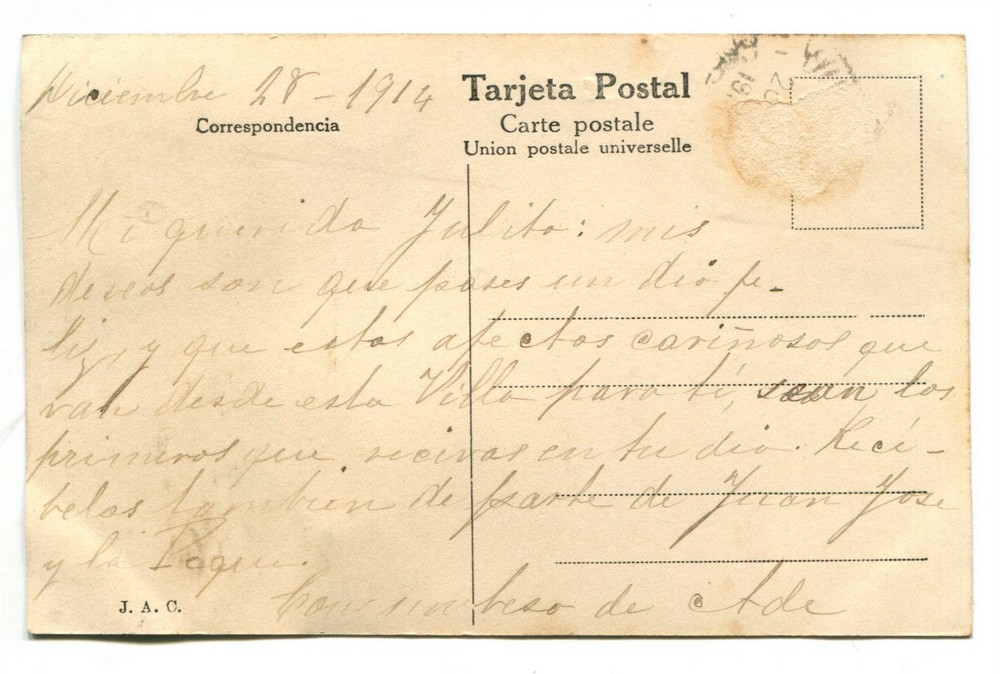 Diciembre 28 - 1914
Tarjeta Postal
Correspondencia
Carte postale
Union postale universelle
Mi querido Julito: mis
deseos son que pases un dia fe-
liz, y que estos afectos cariñosos que
van desde esta Villa para tí, sean los
primeros que recivas en tu dia. Recí-
belos tambien de parte de Juan Jose
y la Peque.
J. A. C.
Con un beso de Ade